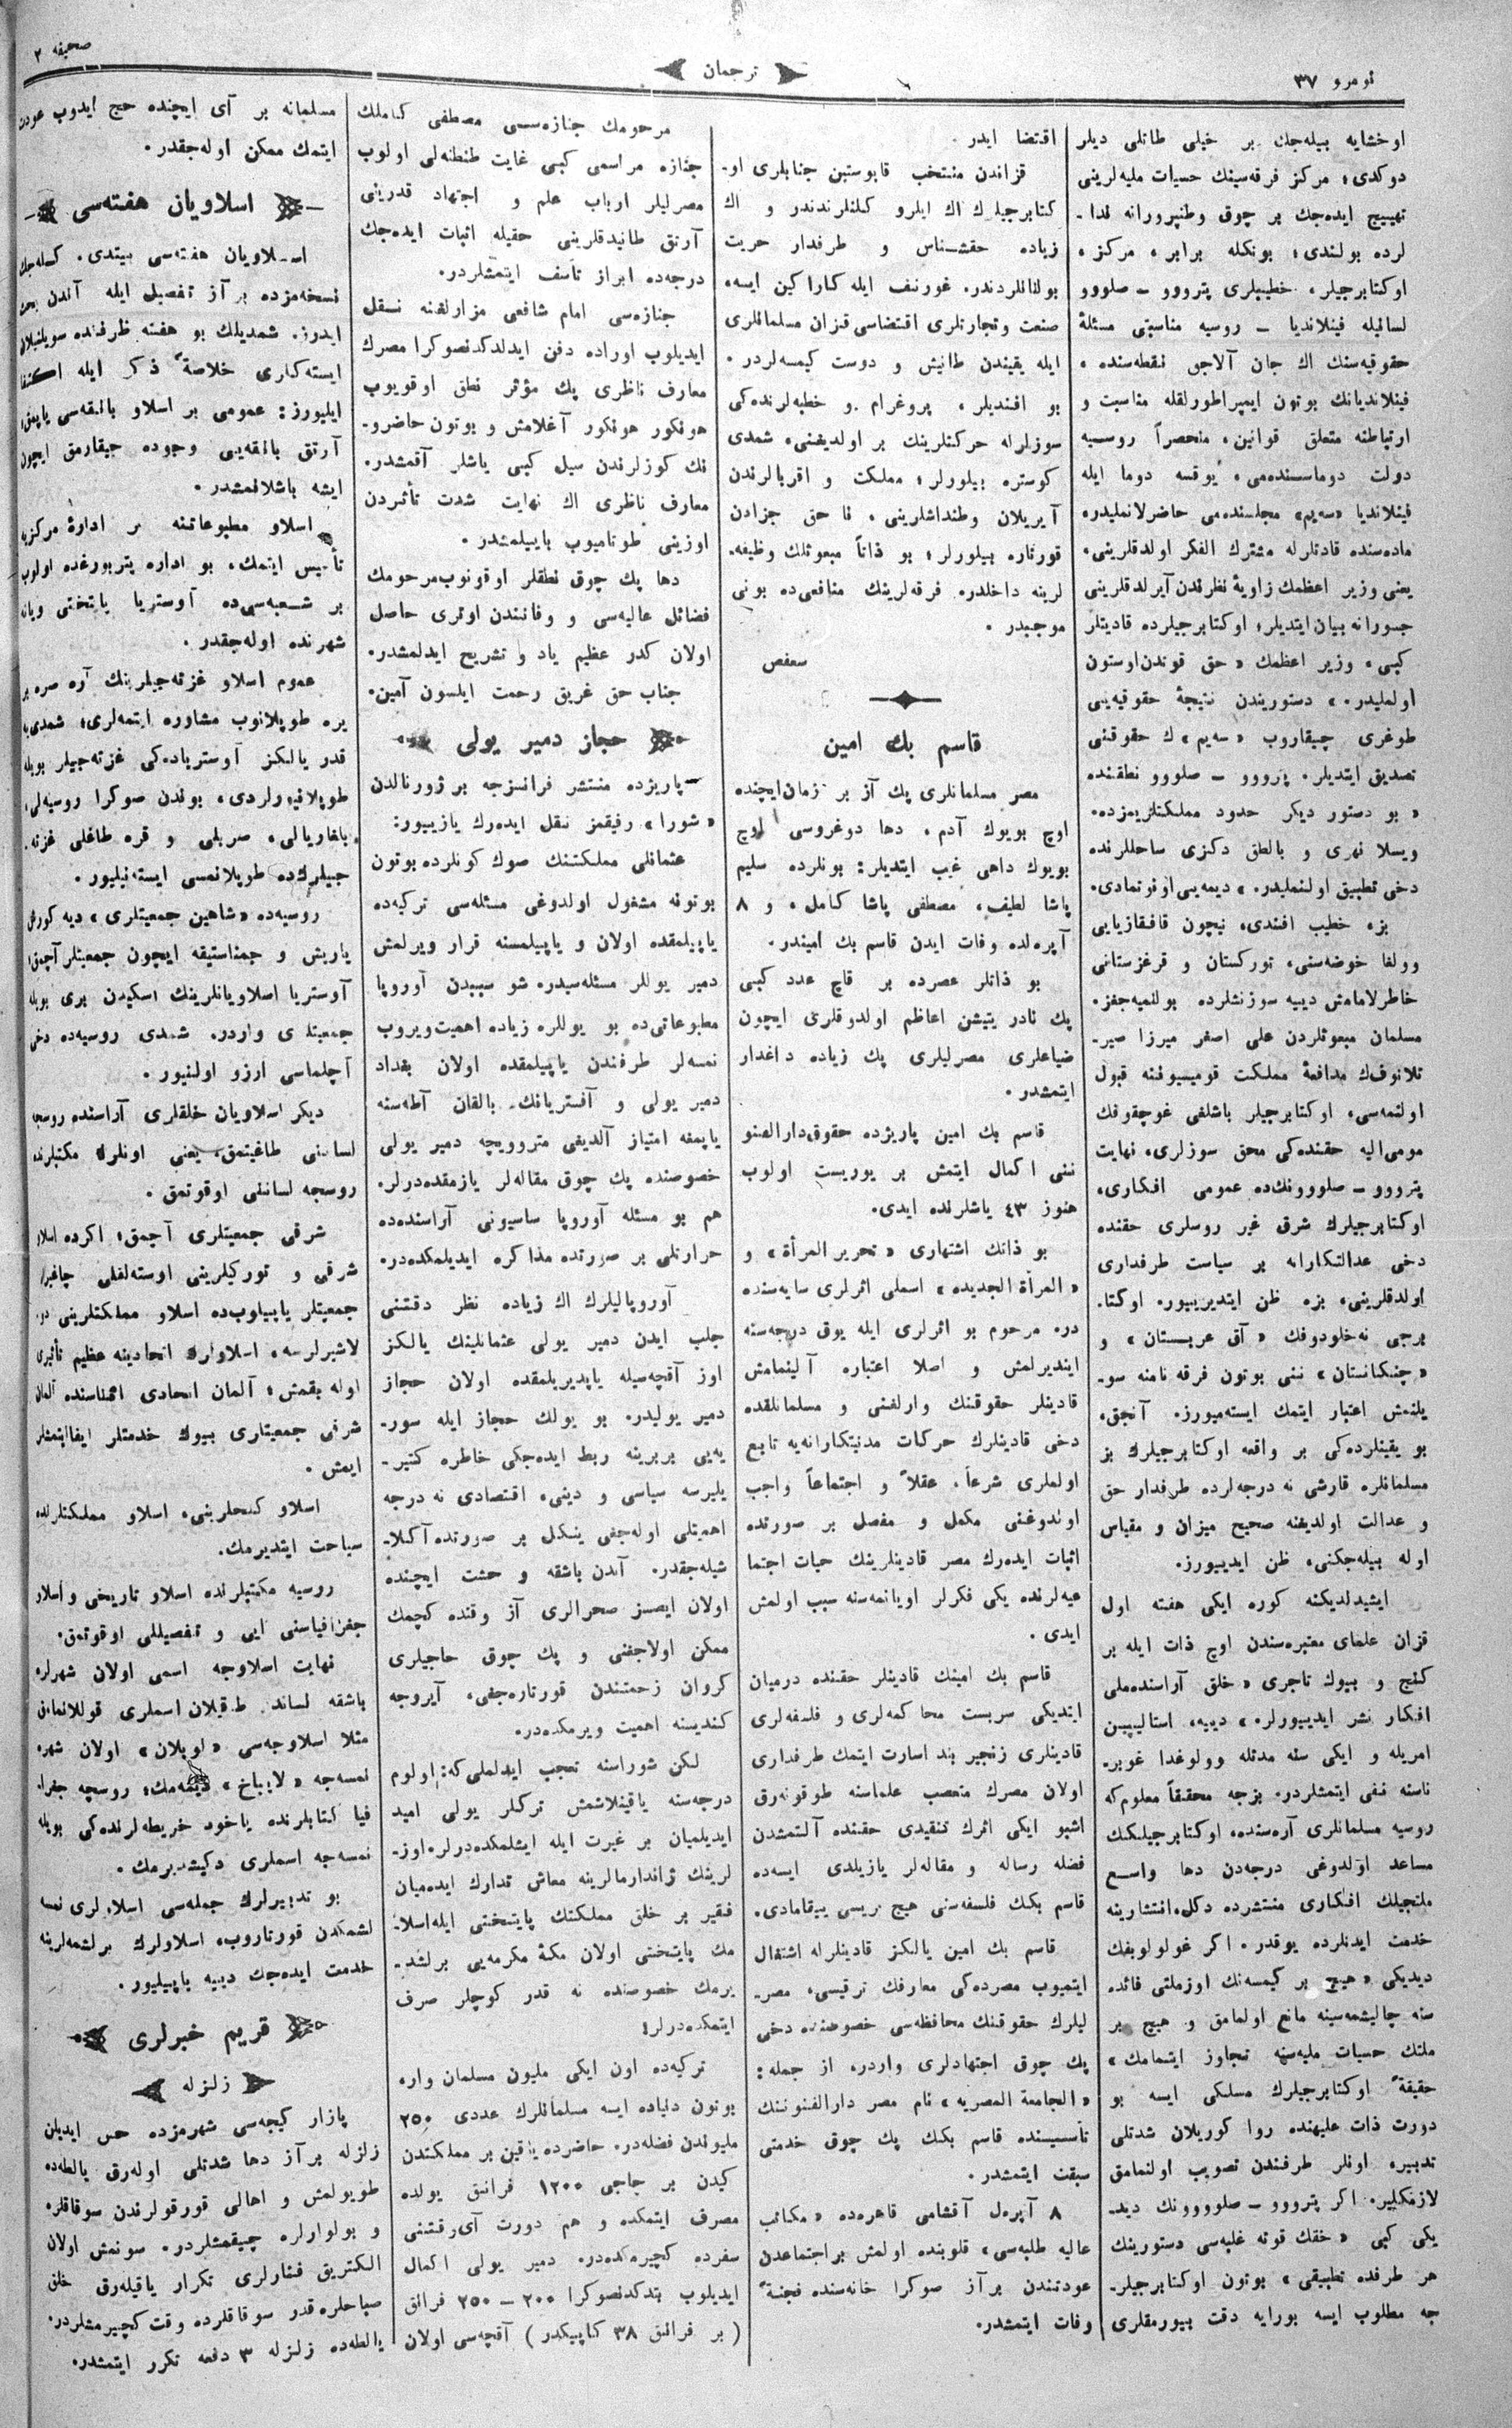 نومرو ٣٧
ترجمان
صحیفه ٢
اوخشایه بیله‌جك بر خیلی طاتلی دیلر
دوكدی؛ مركز فرقه‌سینك حسیات ملیه‌لرینی
تهییج ایده‌جك بر چوق وطنپرورانه ندا-
لرده بولندی؛ بونكله برابر، مركز،
اوكتابرجیلر، خطیبلری پتروو - صلووو
لسانیله فینلاندیا - روسیه مناسبتی مسئلهٔ
حقوقیه‌سنك اك جان آلاجق نقطه‌سنده،
فینلاندیانك بوتون ایمپراطورلقله مناسبت و
ارتباطنه متعلق قوانین، منحصراً روسیه
دولت دوماسنده‌می، یوقسه دوما ایله
فینلاندیا «سه‌یم» مجلسنده‌می حاضرلانملیدر،
ماده‌سنده قادتلرله مشترك الفكر اولدقلرینی،
یعنی وزیر اعظمك زاویهٔ نظرندن آیرلدقلرینی
جسورانه بیان ایتدیلر؛ اوكتابرجیلرده قادیتلر
كبی، وزیر اعظمك «حق قوتدن اوستون
اولملیدر.» دستوریندن نتیجهٔ حقوقیه‌یی
طوغری چیقاروب «سه‌یم» ك حقوقنی
تصدیق ایتدیلر. پتروو - صلووو نطقنده
«بو دستور دیكر حدود مملكتلریمزده،
ویسلا نهری و بالطق دكزی ساحللرنده
دخی تطبیق اولنملیدر.» دیمه‌یی اونوتمادی.
بزه خطیب افندی، نیچون قافقازیایی
وولغا حوضه‌سنی، توركستان و قرغزستانی
خاطرلامامش دییه سوزنشلرده بولنمیه‌جغز.
مسلمان مبعوثلردن علی اصغر میرزا صیر-
تلانوفك مدافعهٔ مملكت قومیسیوننه قبول
اولنمه‌سی، اوكتابرجیلر باشلغی غوچقوفك
مومی الیه حقنده‌كی محق سوزلری، نهایت
پتروو - صلووونك‌ده عمومی افكاری،
اوكتابرجیلرك شرق غیر روسلری حقنده
دخی عدالتكارانه بر سیاست طرفداری
اولدقلرینی، بزه ظن ایتدیرییور. اوكتا.
برجی نه‌خلودوفك «آق عربستان» و
«چنكانستان» نی بوتون فرقه نامنه سو-
یلنمش اعتبار ایتمك ایسته‌میورز. آنجق،
بو یقینلرده‌كی بر واقعه اوكتابرجیلرك بز
مسلمانلره قارشی نه درجه‌لرده طرفدار حق
و عدالت اولدیغنه صحیح میزان و مقیاس
اوله بیله‌جكنی، ظن ایدییورز.
ایشیدلدیكنه كوره ایكی هفته اول
قزان علمای معتبره‌سندن اوچ ذات ایله بر
كنج و بیوك تاجری «خلق آراسنده ملی
افكار نشر ایدییورلر.» دییه، استالیپین
امریله و ایكی سنه مدتله وولوغدا غوبر-
ناسنه نفی ایتمشلردر. بزجه محققاً معلوم كه
روسیه مسلمانلری آره‌سنده، اوكتابرجیلكك
مساعد اولدوغی درجه‌دن دها واسع
ملتجیلك افكاری منتشرده دكل، انتشارینه
خدمت ایدنلرده یوقدر. اكر غولولوبفك
دیدیكی «هیچ بر كیمسه‌نك اوز ملتی فائده
سنه چالیشمه‌سینه مانع اولمامق و هیچ بر
ملتك حسیات ملیه‌سنه تجاوز ایتمامك»
حقیقةً اوكتابرجیلرك مسلكی ایسه بو
دورت ذات علیهنده روا كوریلان شدتلی
تدبیر، اونلر طرفندن تصویب اولنمامق
لازمكلیر. اكر پتروو - صلوووونك دید-
یكی كبی «حقك قوته غلبه‌سی دستورینك
هر طرفده تطبیقی» بوتون اوكتابرجیلر-
جه مطلوب ایسه بورایه دقت بیورمقلری
اقتضا ایدر.
قزاندن منتخب قاپوستین جنابلری او-
كتابرجیلرك اك ایلرو كلنلرندندر و اك
زیاده حقشناس و طرفدار حریت
بولنانلردندر. غورنف ایله كاراكین ایسه،
صنعت و تجارتلری اقتضاسی قزان مسلمانلری
ایله یقیندن طانیش و دوست كیمسه‌لردر.
بو افندیلر، پروغرام و خطبه‌لرنده‌كی
سوزلرله حركتلرینك بر اولدیغنی، شمدی
كوستره بیلورلر؛ مملكت و اقربالرندن
آیریلان وطنداشلرینی، نا حق جزادن
قورتاره بیلورلر؛ بو ذاتاً مبعوثلك وظیفه.
لرینه داخلدر. فرقه‌لرینك منافعی‌ده بونی
موجبدر.
سعفص
قاسم بك امین
مصر مسلمانلری پك آز بر زمان ایچنده
اوچ بویوك آدم، دها دوغروسی اوچ
بویوك داهی غیب ایتدیلر: بونلرده سلیم
پاشا لطیف، مصطفی پاشا كامل، و ٨
آپره‌لده وفات ایدن قاسم بك امیندر.
بو ذاتلر عصرده بر قاچ عدد كبی
پك نادر یتیشن اعاظم اولدوقلری ایچون
ضیاعلری مصرلیلری پك زیاده داغدار
ایتمشدر.
قاسم بك امین پاریزده حقوق دارالفنو
ننی اكمال ایتمش بر یوریست اولوب
هنوز ٤٣ یاشلرنده ایدی.
بو ذاتك اشتهاری «تحریر المرأة» و
«المرأة الجدیده» اسملی اثرلری سایه‌سنده
در. مرحوم بو اثرلری ایله یوق درجه‌سنه
ایندیرلمش و اصلا اعتباره آلینمامش
قادینلر حقوقنك وارلغنی و مسلمانلقده
دخی قادینلرك حركات مدنیتكارانه‌یه تابع
اولملری شرعاً، عقلاً و اجتماعاً واجب
اوندوغنی مكمل و مفصل بر صورتده
اثبات ایده‌رك مصر قادینلرینك حیات اجتما
عیه‌لرنده یكی فكرلر اویانمه‌سنه سبب اولمش
ایدی.
قاسم بك امینك قادینلر حقنده درمیان
ایتدیكی سربست محاكمه‌لری و فلسفه‌لری
قادینلری زنجیر بند اسارت ایتمك طرفداری
اولان مصرك متعصب علماسنه طوقونه‌رق
اشبو ایكی اثرك تنقیدی حقنده آلتمشدن
فضله رساله و مقاله‌لر یازیلدی ایسه‌ده
قاسم بكك فلسفه‌سنی هیچ بریسی ییقامادی.
قاسم بك امین یالكز قادینلرله اشتغال
ایتمیوب مصرده‌كی معارفك ترقیسی، مصر-
لیلرك حقوقنك محافظه‌سی خصوصنده دخی
پك چوق اجتهادلری واردر، از جمله:
«الجامعة المصریه» نام مصر دارالفنوننك
تأسیسنده قاسم بكك پك چوق خدمتی
سبقت ایتمشدر.
٨ آپره‌ل آقشامی قاهره‌ده «مكاتب
عالیه طلبه‌سی» قلوبنده اولمش بر اجتماعدن
عودتندن بر آز صوكرا خانه‌سنده فجئةً
وفات ایتمشدر.
مرحومك جنازه‌سی مصطفی كاملك
جنازه مراسمی كبی غایت طنطنه‌لی اولوب
مصرلیلر ارباب علم و اجتهاد قدرینی
آرتق طانیدقلرینی حقیله اثبات ایده‌جك
درجه‌ده ابراز تأسف ایتمشلردر.
جنازه‌سی امام شافعی مزارلغنه نقل
ایدیلوب اوراده دفن ایدلدكدنصوكرا مصرك
معارف ناظری پك مؤثر نطق اوقویوب
هونكور هونكور آغلامش و بوتون حاضرو-
نك كوزلرندن سیل كبی یاشلر آقمشدر.
معارف ناظری اك نهایت شدت تأثردن
اوزینی طوتامیوب باییلمشدر.
دها پك چوق نطقلر اوقونوب مرحومك
فضائل عالیه‌سی و وفاتندن اوتری حاصل
اولان كدر عظیم یاد و تشریح ایدلمشدر.
جناب حق غریق رحمت ایلسون آمین.
حجاز دمیر یولی
پاریزده منتشر فرانسزجه بر ژورنالدن
«شورا» رفیقمز نقل ایده‌رك یازییور:
عثمانلی مملكتنك صوك كونلرده بوتون
بوتونه مشغول اولدوغی مسئله‌سی تركیه‌ده
یاپیلمقده اولان و یاپیلمسنه قرار ویرلمش
دمیر یوللر مسئله‌سیدر. شو سببدن آوروپا
مطبوعاتی‌ده بو یوللره زیاده اهمیت ویروب
نمسه‌لر طرفندن یاپیلمقده اولان بغداد
دمیر یولی و آفستریانك - بالقان آطه‌سنه
یاپمغه امتیاز آلدیغی متروویچه دمیر یولی
خصوصنده پك چوق مقاله‌لر یازمقده‌درلر.
هم بو مسئله آوروپا ساسیونی آراسنده‌ده
حرارتلی بر صورتده مذاكره ایدیلمكده‌در.
آوروپالیلرك اك زیاده نظر دقتنی
جلب ایدن دمیر یولی عثمانلینك یالكز
اوز آقچه‌سیله یاپدیریلمقده اولان حجاز
دمیر یولیدر. بو یولك حجاز ایله سور-
یه‌یی بربرینه ربط ایده‌جكی خاطره كتیر-
یلیرسه سیاسی و دینی، اقتصادی نه درجه
اهمیتلی اوله‌جغی ینكل بر صورتده آكلا-
شیله‌جقدر. آندن باشقه و حشت ایچنده
اولان ایصسز صحرالری آز وقتده كچمك
ممكن اولاجغنی و پك چوق حاجیلری
كروان زحمتندن قورتاره‌جغی، آیروجه
كندیسنه اهمیت ویرمكده‌در.
لكن شوراسنه تعجب ایدلملی كه: اولوم
درجه‌سنه یاقینلاشمش تركلر یولی امید
ایدیلمیان بر غیرت ایله ایشلمكده‌درلر. اوز-
لرینك ژاندارمالرینه معاش تدارك ایده‌میان
فقیر بر خلق مملكتك پایتختی ایله اسلا-
مك پایتختی اولان مكهٔ مكرمه‌یی برلشد-
یرمك خصوصنده نه قدر كوچلر صرف
ایتمكده‌درلر؛
تركیه‌ده اون ایكی ملیون مسلمان وار،
بوتون دنیاده ایسه مسلمانلرك عددی ٢٥٠
ملیوندن فضله‌در. حاضرده یاقین بر مملكتدن
كیدن بر حاجی ١٢٠٠ فرانق یولده
مصرف ایتمكده و هم دورت آی وقتنی
سفرده كچیرمكده‌در. دمیر یولی اكمال
ایدیلوب بتدكدنصوكرا ٢٠٠ - ٢٥٠ فرانق
(بر فرانق ٣٨ كاپیكدر) آقچه‌سی اولان
مسلمانه بر آی ایچنده حج ایدوب عودت
ایتمك ممكن اوله‌جقدر.
اسلاویان هفته‌سی
اسلاویان هفته‌سی بیتدی. كله‌جك
نسخه‌مزده بر آز تفصیل ایله آندن بحث
ایدرز. شمدیلك بو هفته ظرفنده سویلنیلان
ایسته‌كلری خلاصةً ذكر ایله اكتفا
ایلیورز: عمومی بر اسلاو بانقه‌سی یاپمق،
آرتق بانقه‌یی وجوده چیقارمق ایچون
ایشه باشلانمشدر.
اسلاو مطبوعاتنه بر ادارهٔ مركزیه
تأسیس ایتمك، بو اداره پتربورغده اولوب
بر شعبه‌سی‌ده آوستریا پایتختی ویانه
شهرنده اوله‌جقدر.
عموم اسلاو غزته‌جیلرینك آره صره بر
یره طوپلانوب مشاوره ایتمه‌لری؛ شمدی‌یه
قدر یالكز آوستریاده‌كی غزته‌جیلر بویله
طوپلانیورلردی، بوندن صوكرا روسیه‌لی،
بلغاریالی، صربلی و قره طاغلی غزته.
جیلرك‌ده طوپلانمسی ایسته‌نیلیور.
روسیه‌ده «شاهین جمعیتلری» دیه كورش
یاریش و جمناستیقه ایچون جمعیتلر آچمق؛
آوستریا اسلاویانلرینك اسكیدن بری بویله
جمعیتلری واردر. شمدی روسیه‌ده دخی
آچلماسی آرزو اولنیور.
دیكر اسلاویان خلقلری آراسنده روسجه
لساننی طاغیتمق، یعنی اونلرك مكتبلرنده
روسجه لساننی اوقوتمق.
شرقی جمعیتلری آچمق؛ اكرده اسلاو
شرقی و توركیلرینی اوسته‌لغلی چاغیرا
جمعیتلر یاپیلوب‌ده اسلاو مملكتلرینی دو.
لاشیرلرسه، اسلاولرك اتحادینه عظیم تأثیری
اوله بقمش؛ آلمان اتحادی اثناسنده آلمان
شرقی جمعیتلری بیوك خدمتلر ایفا ایتمشلر
ایمش.
اسلاو كنجلرینی، اسلاو مملكتلرنده
سیاحت ایتدیرمك.
روسیه مكتبلرنده اسلاو تاریخی و اسلاو
جغرافیاسنی ایی و تفصیللی اوقوتمق.
نهایت اسلاوجه اسمی اولان شهرلره
باشقه لساندن طاقیلان اسملری قوللانمامق
مثلا اسلاوجه‌سی «لوبلان» اولان شهره
نمسه‌جه «لایباخ» دیمه‌مك؛ روسچه جغرا.
فیا كتابلرنده یاخود خریطه‌لرنده‌كی بویله
نمسه‌جه اسملری دكیشدیرمك.
بو تدبیرلرك جمله‌سی اسلاولری نمسه
لشمكدن قورتاروب، اسلاولرك برلشمه‌لرینه
خدمت ایده‌جك دییه یاپیلیور.
قریم خبرلری
زلزله
پازار كیجه‌سی شهرمزده حس ایدیلن
زلزله بر آز دها شدتلی اوله‌رق یالطه‌ده
طویولمش و اهالی قورقولرندن سوقاقلره
و بولوارلره چیقمشلردر. سونمش اولان
الكتریق فنارلری تكرار یاقیله‌رق خلق
صباحلره قدر سوقاقلرده وقت كچیرمشلردر.
یالطه‌ده زلزله ٣ دفعه تكرر ایتمشدر.